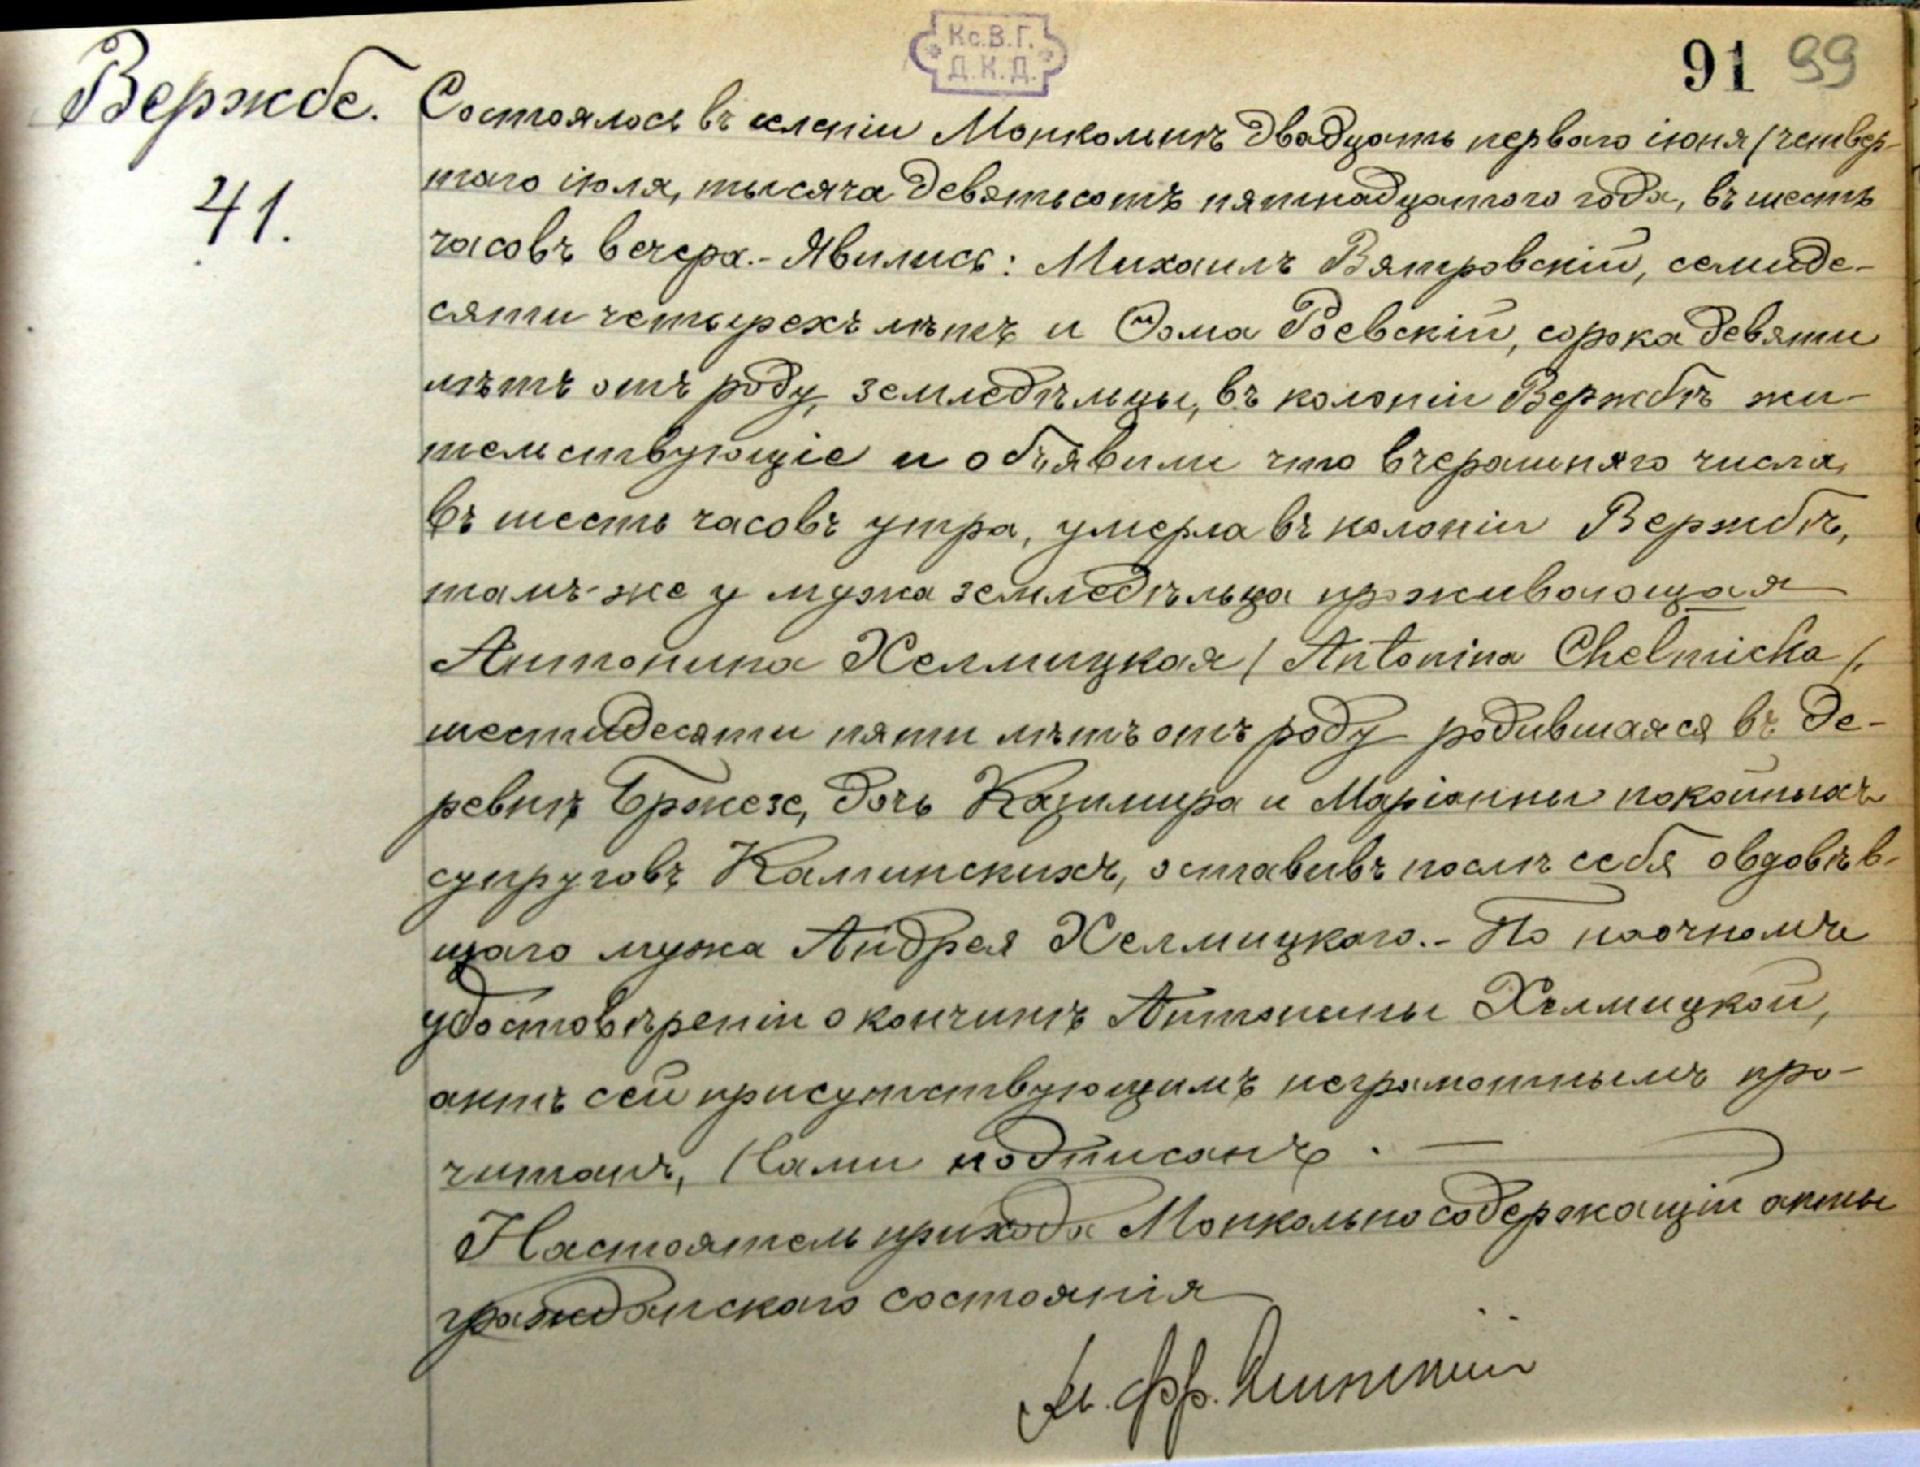 Кс.В.Г.
Д.К.Д.
91 99
Вержбе.
41.
Состоялось въ селеніи Монкольнѣ двадцать перваго іюня /четвер-
таго іюля, тысяча девятьсотъ пятнадцатого года, въ шесть
часовъ вечера.- Явились: Михаилъ Вятровскій, семиде-
сяти четырехъ лѣтъ и Ѳома Роевскій, сорока девяти
лѣтъ отъ роду, земледѣльцы, въ колоніи Вержбѣ жи-
тельствующіе и объявили что вчерашняго числа,
въ шесть часовъ утра, умерла въ колоніи Вержбѣ,
тамъ-же у мужа земледѣльца проживающая
Антонина Хелмицкая /Antonina Chełmicka/,
шестидесяти пяти лѣтъ отъ роду родившаяся въ де-
ревнѣ Бржезе, дочь Казимира и Маріанны покойныхъ
супруговъ Каминскихъ, оставивъ послѣ себя овдовѣв-
шаго мужа Андрея Хелмицкаго.- По наочномъ
удостовѣреніи о кончинѣ Антонины Хелмицкой,
актъ сей присутствующимъ неграмотнымъ про-
читанъ, Нами подписанъ. —
Настоятель прихода Монкольно содержащій акты
гражданскаго состоянія